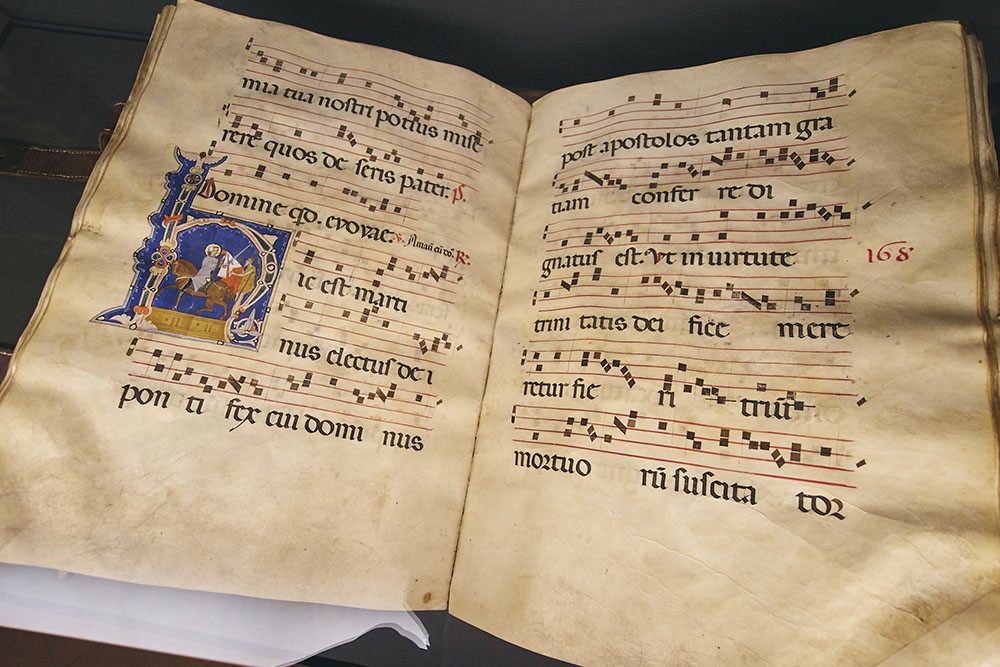 mia tua nostri potius mise
rere quos de seris pater. P.
Domine qd. evovae.
R.
ic est marti
nus electus de i
pon ti fex cui domi nus
post apostolos tantam gra
tiam confer re di
gnatus est. Vt in uirtute
168
trini tatis dei fice mere
retur fie ri triũ
mortuo rũ suscita tor